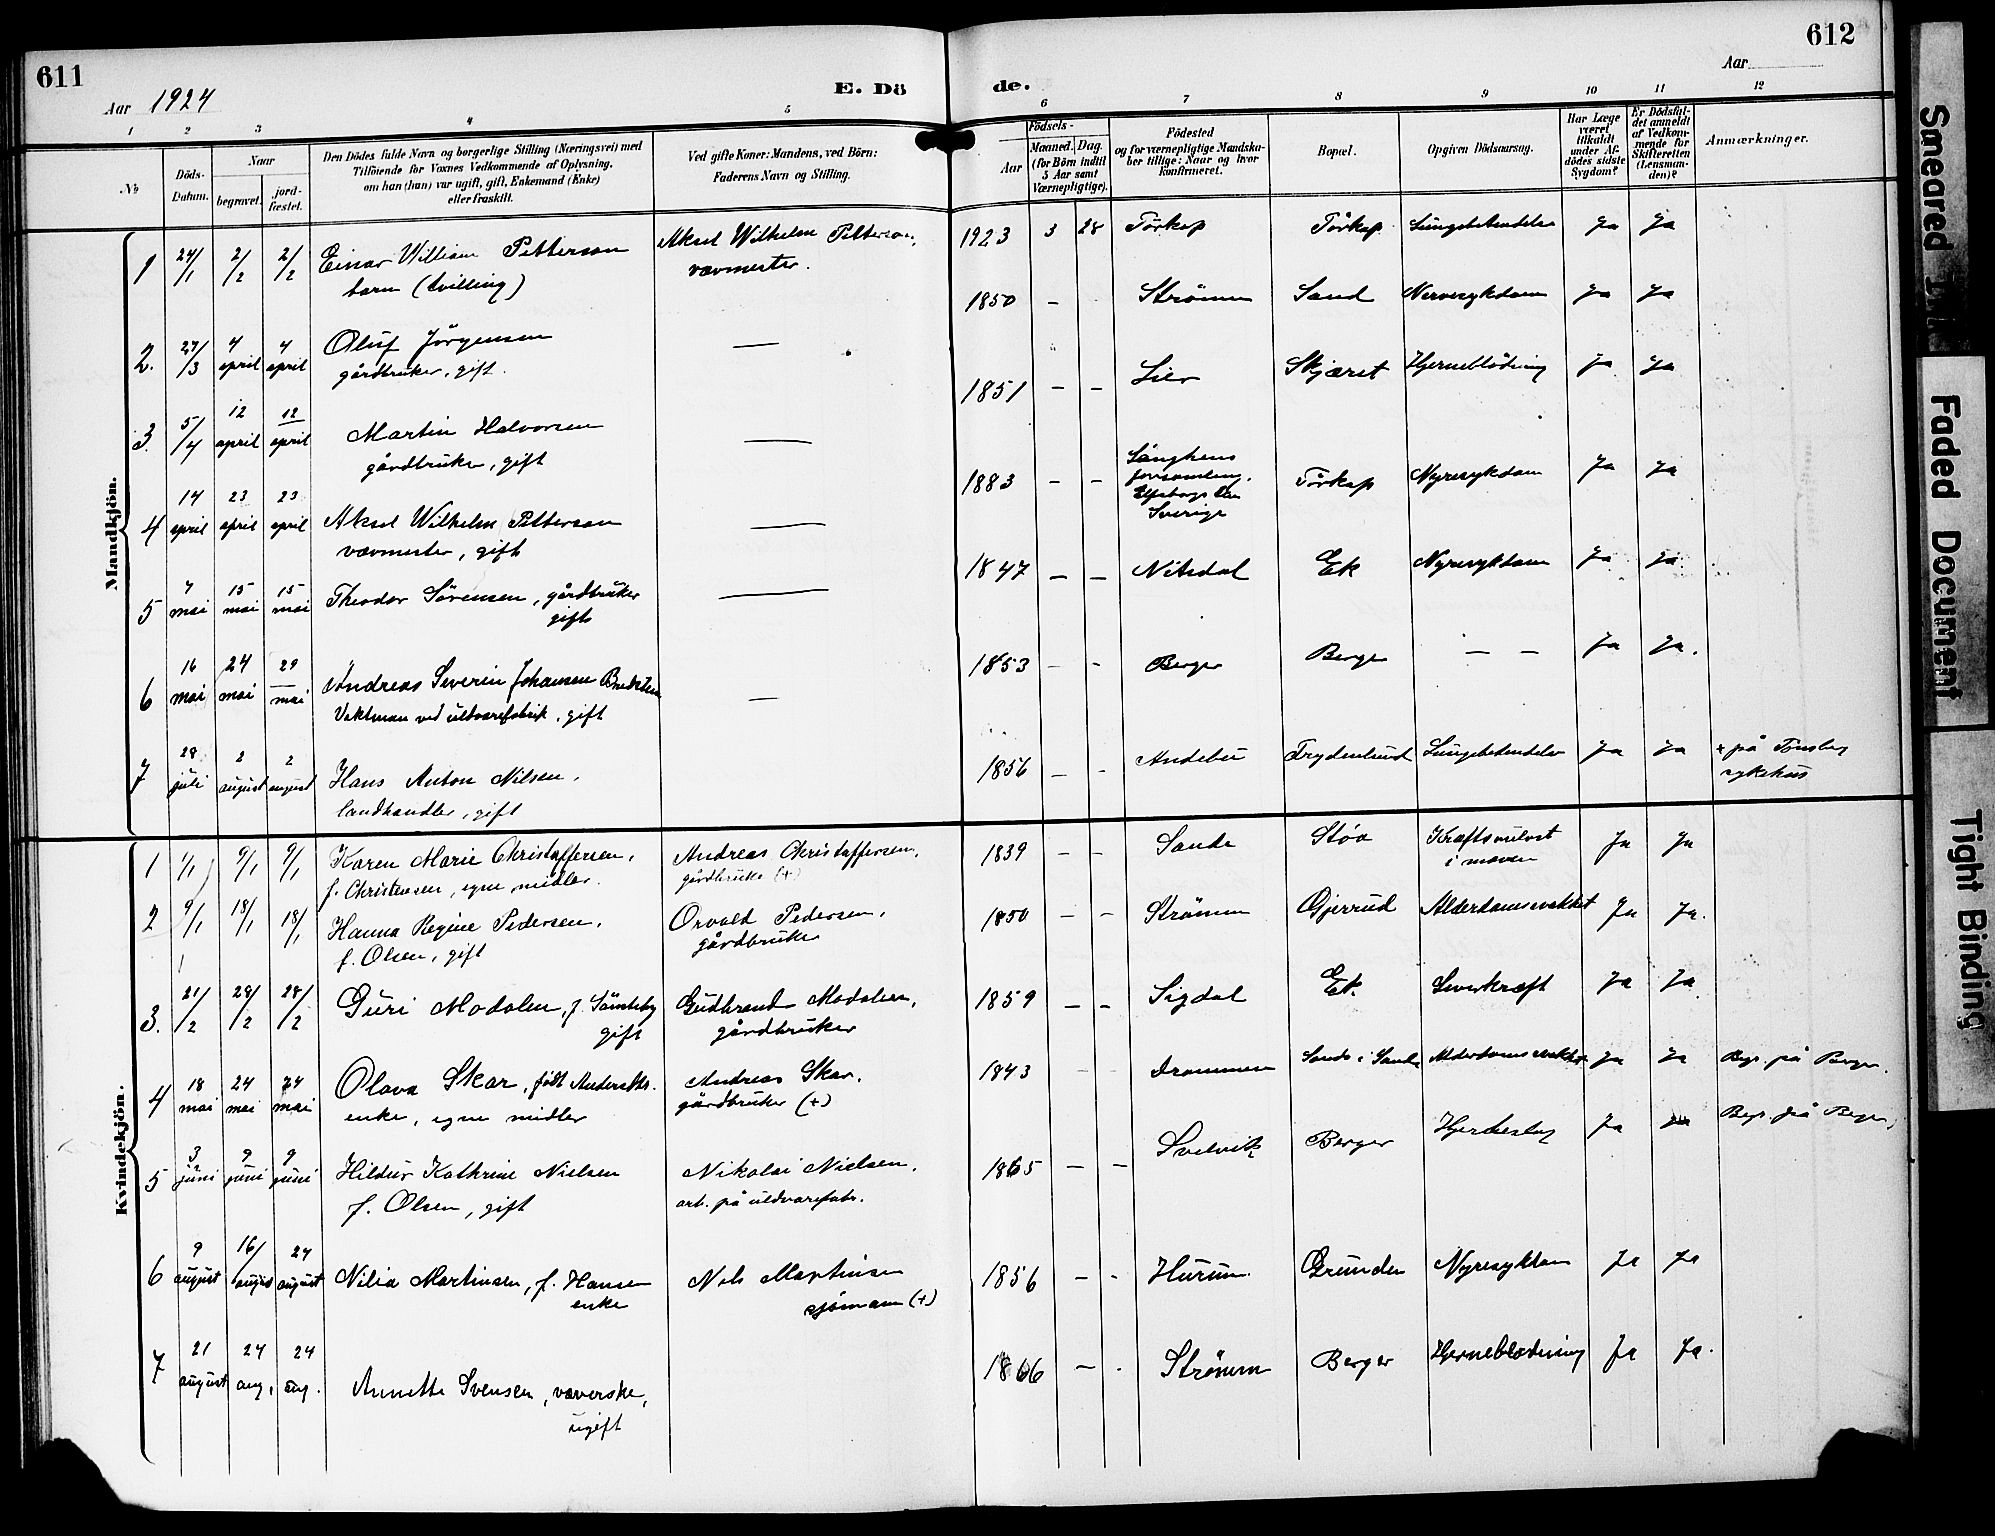 611
612
Aar 1924
E. Dö
de.
Aar
1 2 3 4 5 6 7 8 9 10 11 12
No
Döds-
Datum.
Naar
begravet.
jord-
fæstet.
Den Dödes fulde Navn og borgerlige Stilling (Næringsvei) med
Tilföiende for Voxnes Vedkommende af Oplysning,
om han (hun) var ugift, gift, Enkemand (Enke)
eller fraskilt.
Ved gifte Koner: Mandens, ved Börn:
Faderens Navn og Stilling.
Födsels-
Aar
Maaned. Dag.
(for Börn indtil
5 Aar samt
Værnepligtige).
Födested
og for værnepligtige Mandska-
ber tillige: Naar og hvor
konfirmeret.
Bopæl.
Opgiven Dödsaarsag.
Har Læge
været
tilkaldt
under Af-
dödes sidste
Sygdom?
Er Dödsfal-
det anmeldt
af Vedkom-
mende for
Skifteretten
(Lensman-
den)?
Anmærkninger.
Mandkjön.
1 24/1 2/2 2/2 Einar William Petterson Aksel Wilhelm Petterson, 1923 3 28 Törkop Törkop Lungebetendelse Ja Ja
barn (tvilling) vævmester.
2. 27/3 4 april 4 april Oluf Jörgensen — 1850 - Strömm Sand Nervesykdom Ja Ja
gårdbruker, gift.
3. 5/4 12 april 12 april Martin Halvorsen — 1851 - - Lier Skjæret Hjerneblödning Ja Ja
gårdbruker, gift
4 14 april 23 april 23 april Aksel Wilhelm Petterson — 1883 - - Länghens
forsamling,
Elfsborgs Län
Sverige Törkop Nyresykdom Ja Ja
vævmester, gift
5 7 mai 15 mai 15 mai Theodor Sörensen, gårdbruker — 1847 - - Nitedal Ek Nyresykdom Ja Ja
gift
6 16 mai 24 mai 29 mai Andreas Severin Johansen — 1853 - - Berger Berger — — Ja Ja.
Vaktman ved uldvarefabrik, gift
7 28 juli 2 august 2 august Hans Anton Nilsen, 1856 - - Andebu Frydenlund Lungebetendelse Ja Ja + på Tönsberg
sykehus
landhandler, gift
Kvindekjön.
1 1/1 9/1 9/1 Karen Marie Christoffersen, Andreas Christoffersen, 1839 - - Sande Stöa Kræftsvulst
i maven Ja Ja
f. Christensen, egne midler. gårdbruker (+)
2 9/1 18/1 18/1 Hanna Regine Pedersen, Orvald Pedersen, 1850 - - Strömm Gjerrud Alderdomssvakhet Ja Ja.
f. Olsen, gift gårdbruker
3. 21/2 28/2 28/2 Guri Modalen, f. Gudbrand Modalen, 1859 - - Sigdal Ek. Leverkræft Ja Ja
gift gårdbruker
4 18 mai 24 mai 24 mai Olava Skar, født Andreas Skar, 1843 - - Drammen Sande i Sande Alderdomssvakhet Ja Ja Begr. på Berger.
enke, egne midler gårdbruker (+)
5 3 juni 9 juni 9 juni Hildur Kathrine Nielsen Nikolai Nielsen, 1865 - - Svelvik Berger Hjerteslag Ja Ja Begr. på Berger,
f. Olsen, gift arb. på uldvarefabr.
6 9 august 16/ august 24 august Nilia Martinsen, f. Hansen Nels Martinsen 1856 - - Hurum Grunden Nyresykdom Ja Ja
enke sjömann (+)
7 21 august 24 aug. 24 aug. Annette Svensen, væverske, 1866 - - Strömm Berger Hjerneblødning Ja Ja.
ugift
Smeared
Faded Document
Tight Binding